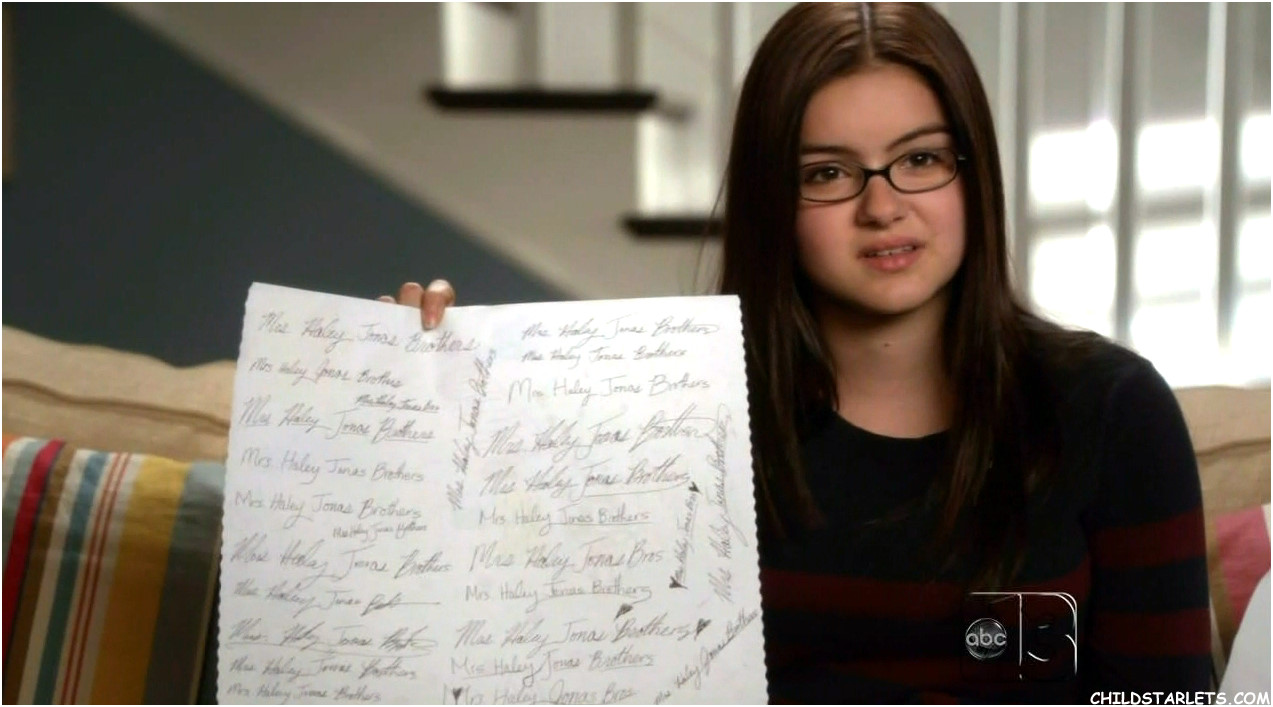 Mrs Haley Jonas Brothers
Mrs Haley Jonas Brothers
Mrs Haley Jonas Bros
Mrs Haley Jonas Brothers
Mrs Haley Jonas Brothers
Mrs Haley Jonas Brothers
Mrs Haley Jonas
Mrs Haley Jonas Brothers
Mrs Haley Jonas
Mrs Haley Jonas
Mrs Haley Jonas Brothers
Mrs Haley Jonas Brothers
Mrs Haley Jonas Brothers
Mrs Haley Jonas Brothers
Mrs Haley Jonas Brothers
Mrs Haley Jonas Brothers
Mrs Haley Jonas Brothers
Mrs Haley Jonas Brothers
Mrs Haley Jonas Brothers
Mrs Haley Jonas Bros
Mrs Haley Jonas Brothers
Mrs Haley Jonas Brothers
Mrs Haley Jonas Brothers
Mrs Haley Jonas Bros
Mrs Haley Jonas Bros
Mrs Haley Jonas Brothers
Mrs Haley Jonas Brothers
abc 13
CHILDSTARLETS.COM